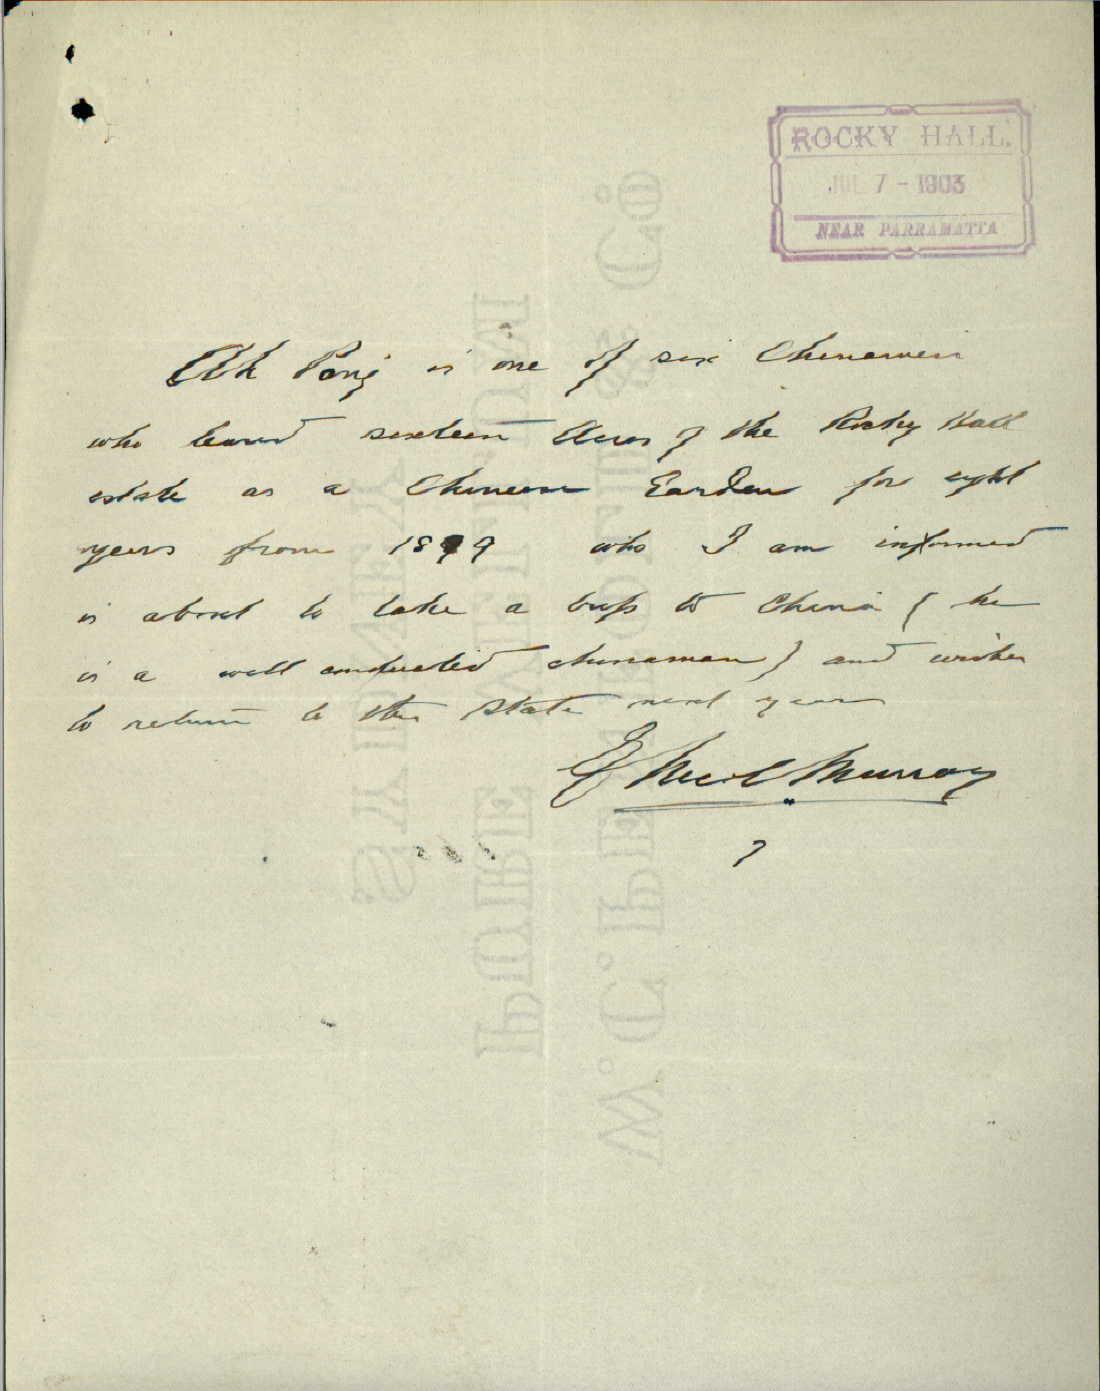 ROCKY HALL.
JUL 7 - 1903
NEAR PARRAMATTA
Ah Pong is one of six Chinamen
who leased sixteen Acres of the Rocky Hall
estate as a Chinese Garden for eight
years from 1899 who I am informed
is about to take a trip to China ( he
is a well conducted chinaman ) and wishes
to return to this State next year
Neil Murray
W. C. PE & Co
PURE
SYDNEY